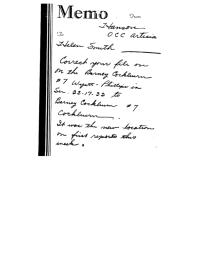 Memo From
Hanson
To OCC Artesia
Helen Smith
Correct your file on
on the Barney Cockburn
#7 Wyatt-Phillips in
Sec. 22-17-33 to
Barney Cockburn #7
Cockburn
It was the new location
on first reports this
week.